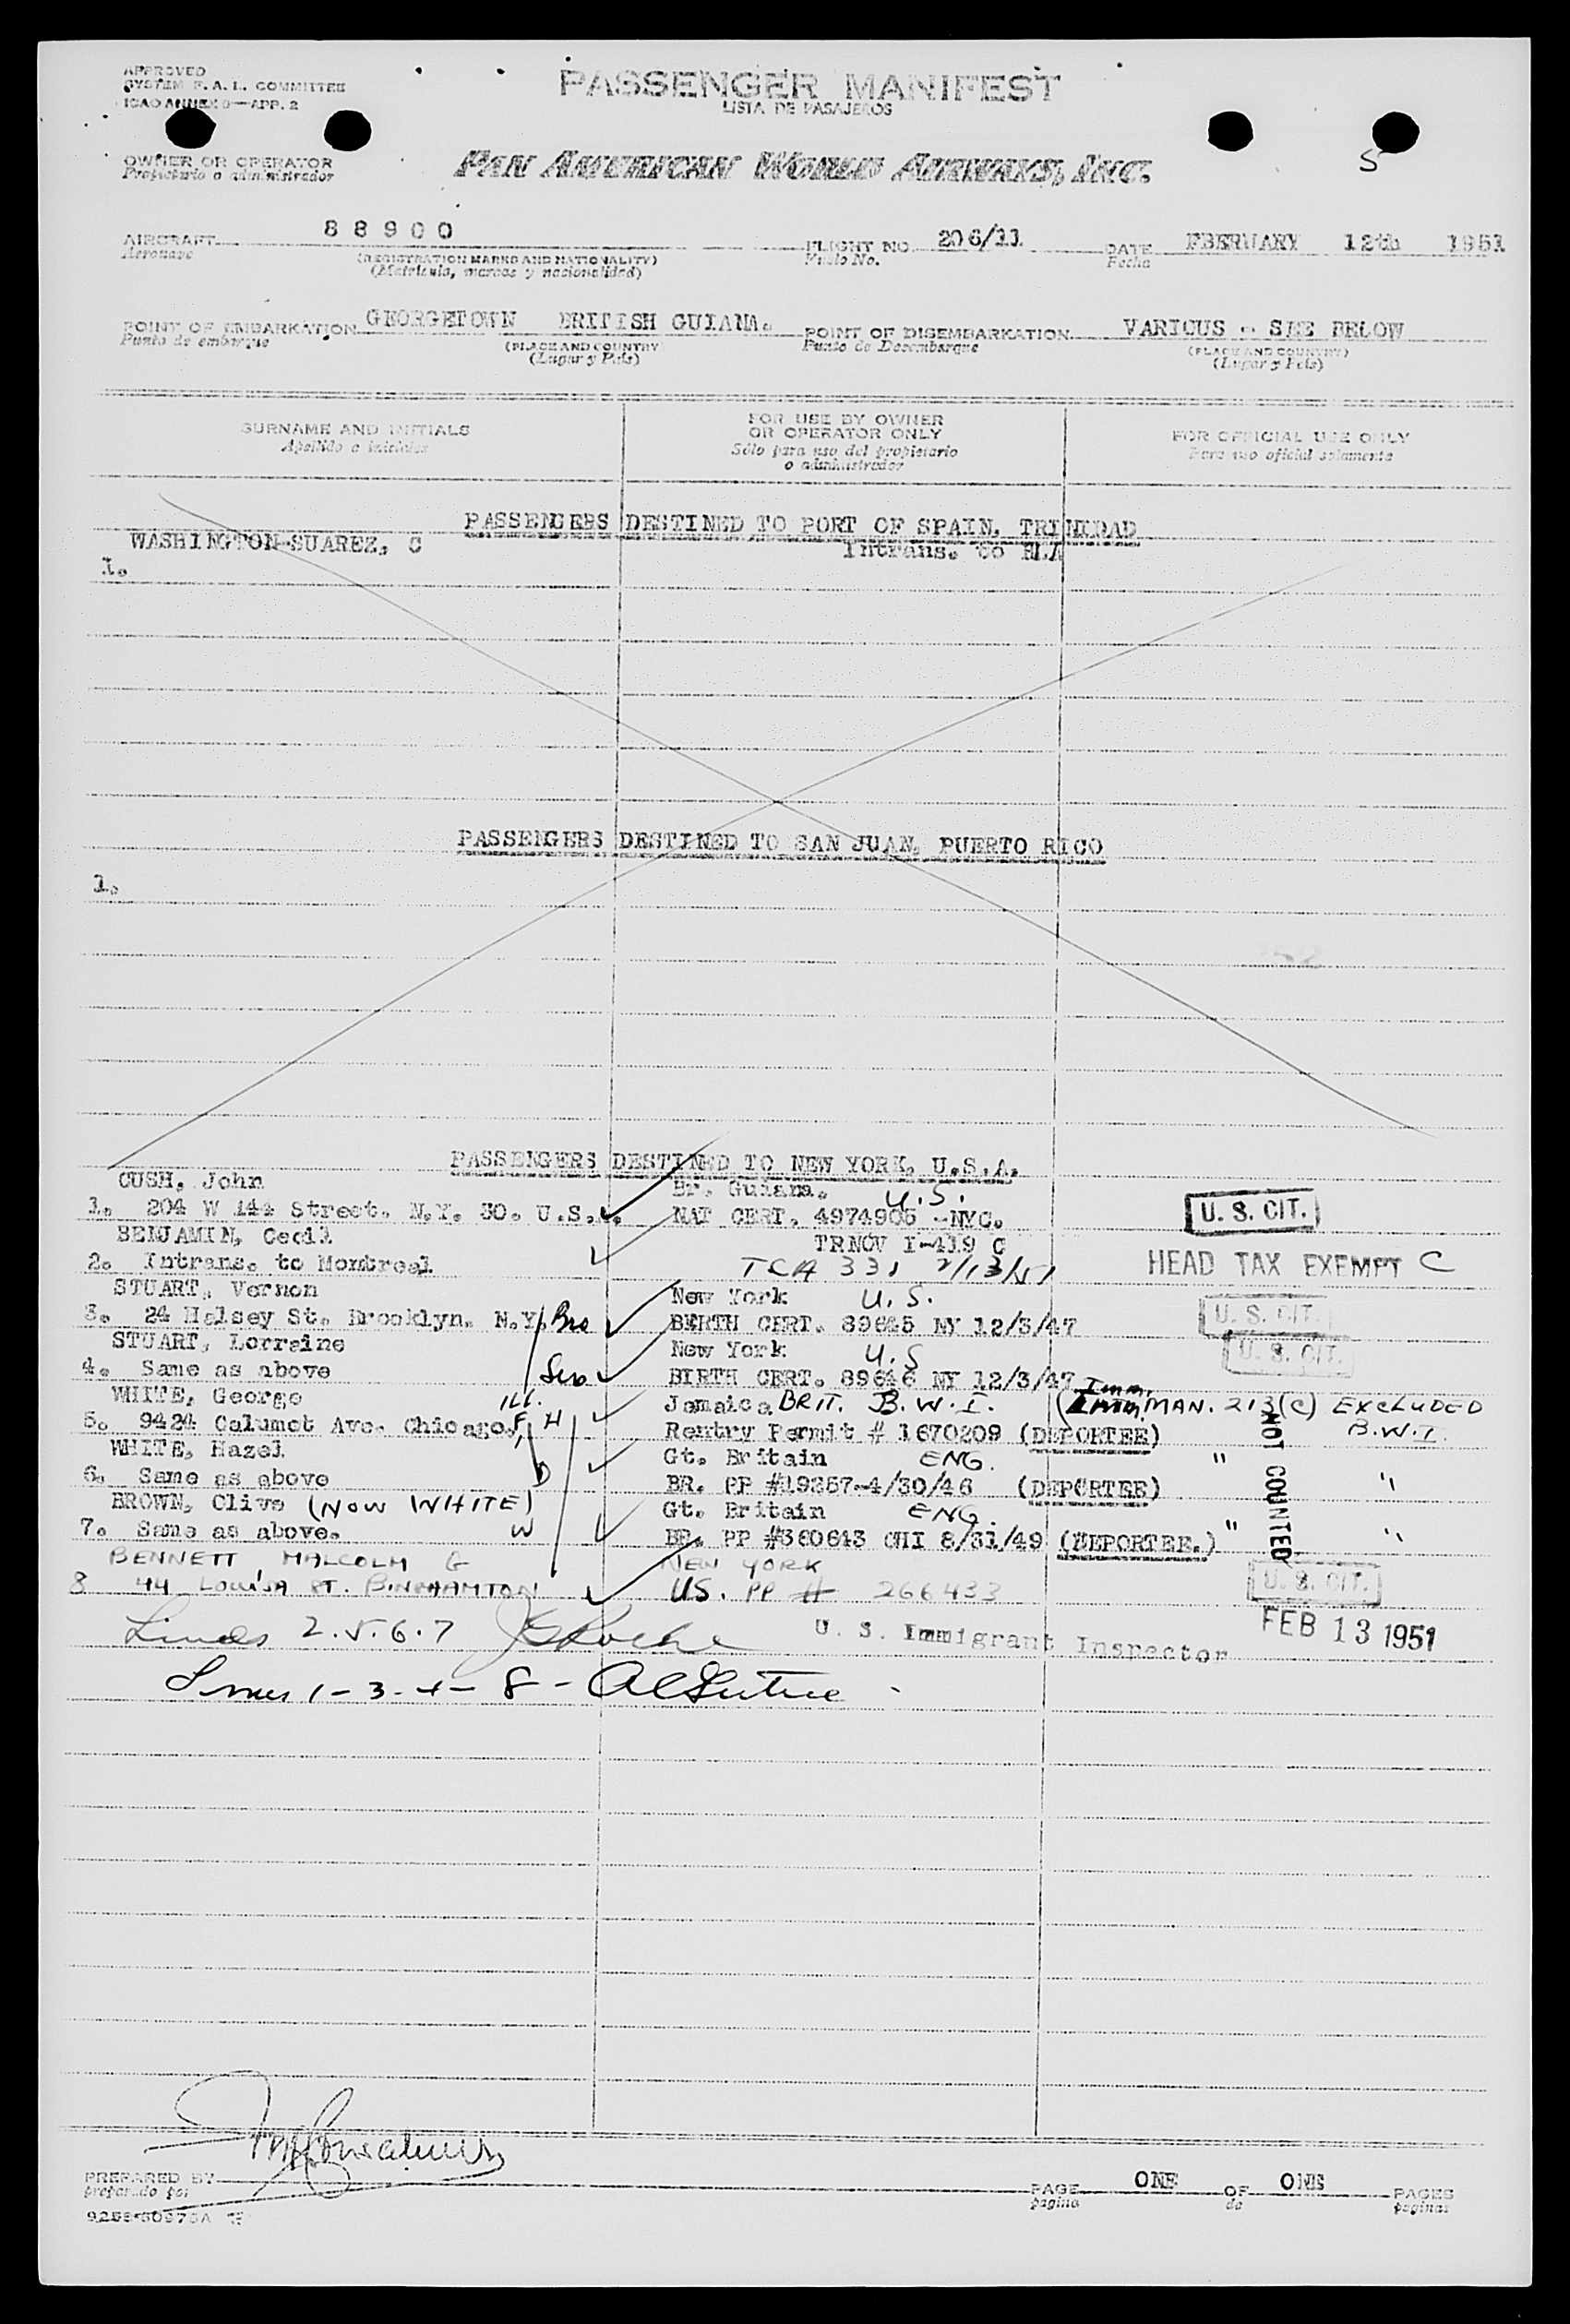 APPROVED
SYSTEM F. A. L. COMMITTEE
ICAO ANNEX 9—APP. 2
PASSENGER MANIFEST
LISTA DE PASAJEROS
5
OWNER OR OPERATOR
Propietario o administrador
PAN AMERICAN WORLD AIRWAYS, INC.
AIRCRAFT 88900
Aeronave
(REGISTRATION MARKS AND NATIONALITY)
(Matricula, marcas y nacionalidad)
FLIGHT NO. 206/11
Vuelo No.
DATE FBERUARY 12th 1951
Fecha
POINT OF EMBARKATION GEORGETOWN BRITISH GUIANA.
Punto de embarque
(PLACE AND COUNTRY)
(Lugar y Pais)
POINT OF DISEMBARKATION VARIOUS - SEE BELOW
Punto de Desembarque
(PLACE AND COUNTRY)
(Lugar y Pais)
SURNAME AND INITIALS
Apellido e iniciales
FOR USE BY OWNER
OR OPERATOR ONLY
Sólo para uso del propietario
o administrador
FOR OFFICIAL USE ONLY
Para uso oficial solamente
PASSENGERS DESTINED TO PORT OF SPAIN, TRINIDAD
WASHINGTON-SUAREZ, C Intrans. to
1.
PASSENGERS DESTINED TO SAN JUAN, PUERTO RICO
1.
PASSENGERS DESTINED TO NEW YORK, U.S.A.
CUSH, John Br. Guiana. U.S.
1. 204 W 144 Street. N.Y. 30. U.S.A. NAT CERT. 4974905 -NYC. U. S. CIT.
BENJAMIN, Cecil TRNOV I-419 C
2. Intrans. to Montreal TCA 331 2/13/51 HEAD TAX EXEMPT C
STUART, Vernon New York U.S.
3. 24 Halsey St. Brooklyn. N.Y. Bro BERTH CERT. 89645 NY 12/3/47 U. S. CIT.
STUART, Lorraine New York U.S
4. Same as above Sis BIRTH CERT. 89646 NY 12/3/47 U. S. CIT.
WHITE, George ILL. Jamaica BRIT. B.W.I. (Imm. MAN. 213(C) EXCLUDED
5. 9424 Calumet Ave. Chicago. F H Rentry Permit # 1670209 (DEPORTEE) B.W.I.
WHITE, Hazel Gt. Britain ENG. "
6. Same as above D BR. PP #19357-4/30/46 (DEPORTEE) "
BROWN, Clive (NOW WHITE) Gt. Britain ENG.
7. Same as above. W BR. PP #360643 CHI 8/31/49 (DEPORTEE.) " "
NOT COUNTED
BENNETT, MALCOLM G NEW YORK
8 44 LOUISA ST. BINGHAMTON US. PP # 266433 U. S. CIT.
Lines 2.5.6.7 U. S. Immigrant Inspector FEB 13 1951
Lines 1-3-4-8-
PREPARED BY
preparado por
PAGE ONE OF ONE PAGES
pagina de paginas